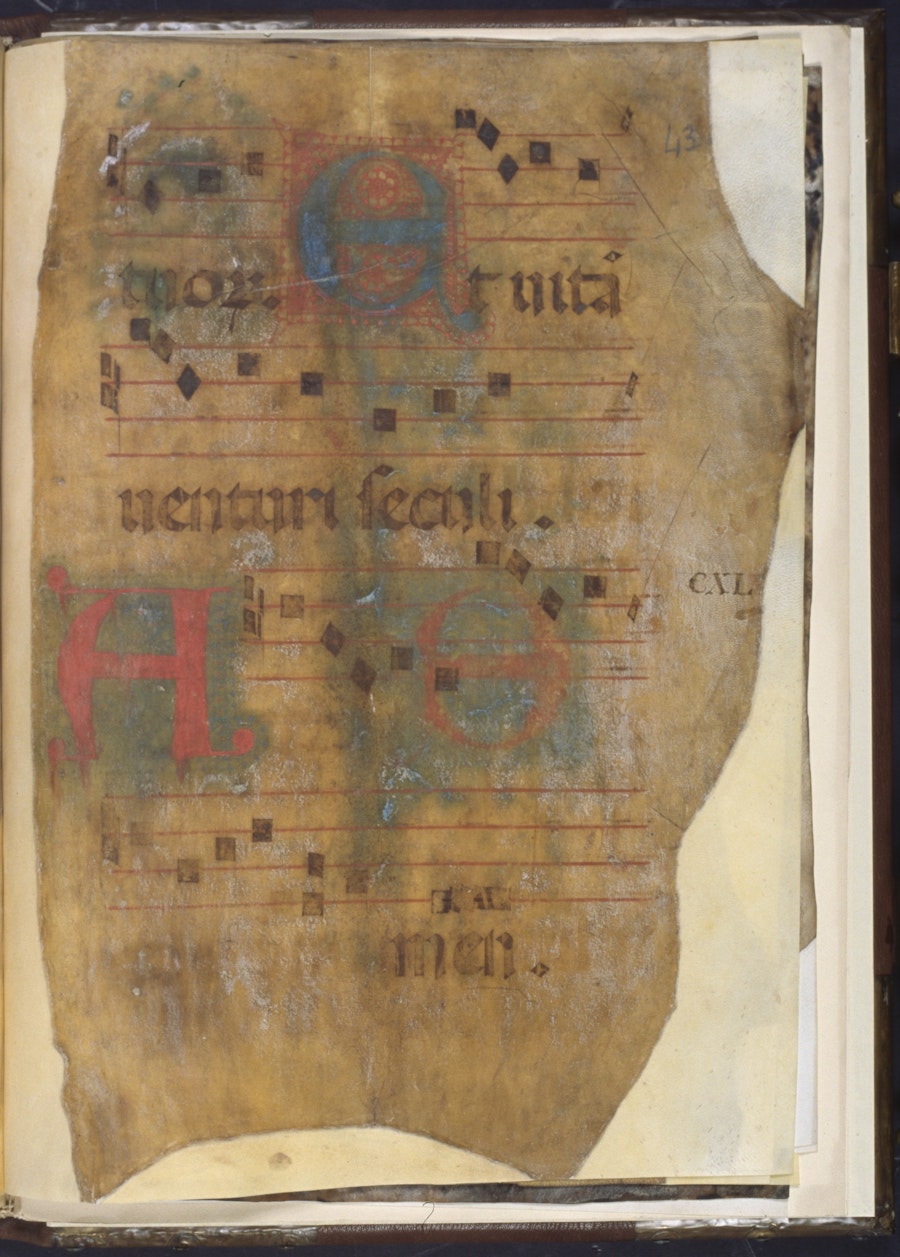 43
tuoꝝ. Et uitā
uenturi seculi.
CXL
A
men.